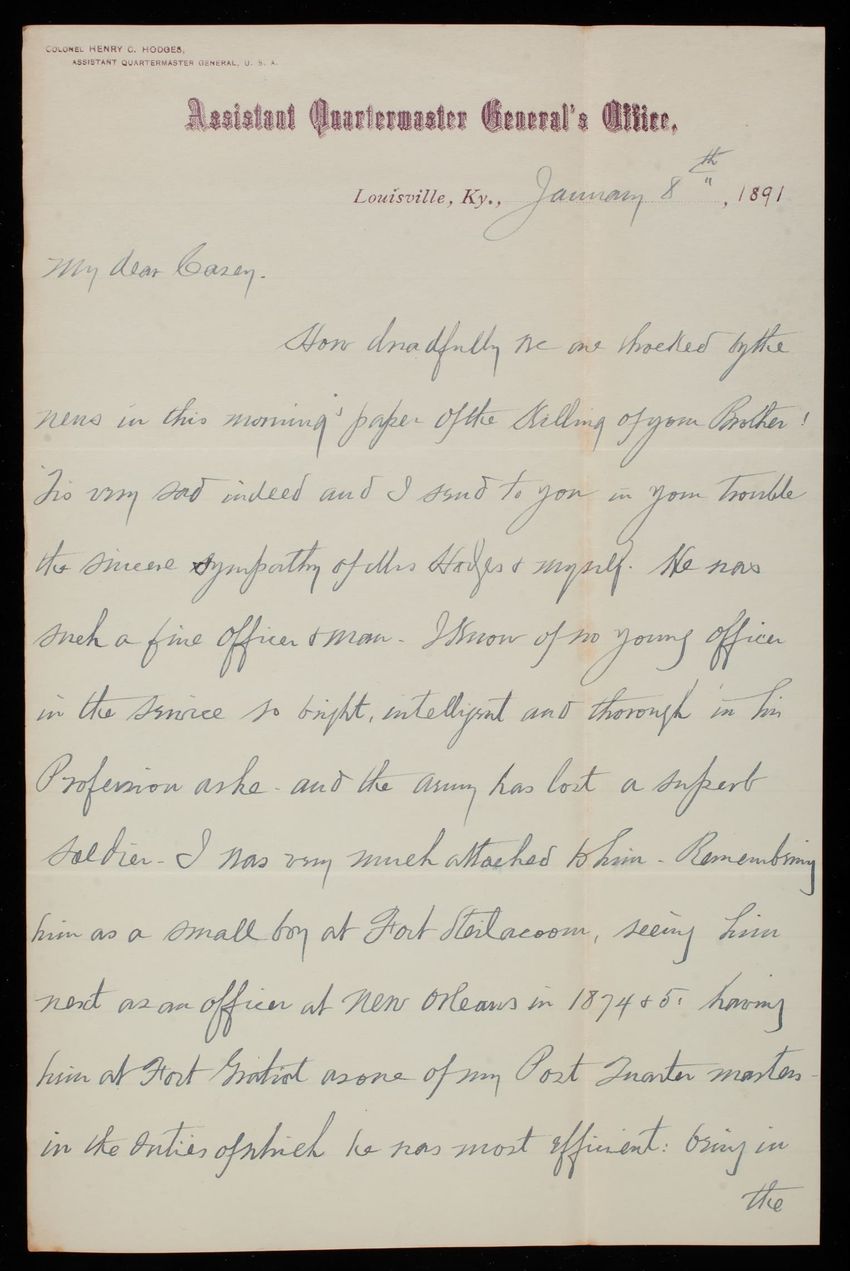 COLONEL HENRY C. HODGES,
ASSISTANT QUARTERMASTER GENERAL, U. S. A.
Assistant Quartermaster General's Office,
Louisville, Ky., January 8th, 1891
My dear Casey.
How dreadfully we are shocked by the
news in this morning's paper of the Killing of your Brother!
Tis very sad indeed and I send to you in your trouble
the sincere sympathy of Mrs Hodges & myself. He was
such a fine officer & man - I Know of no young officer
in the service so bright, intelligent and thorough in his
Profession as he - and the army has lost a superb
soldier - I was very much attached to him - Remembering
him as a small boy at Fort Steilacoom, seeing him
next as an officer at New Orleans in 1874 & 5: having
him at Fort Gratiot as one of my Post Quarter masters -
in the duties of which he was most efficient: being in
the